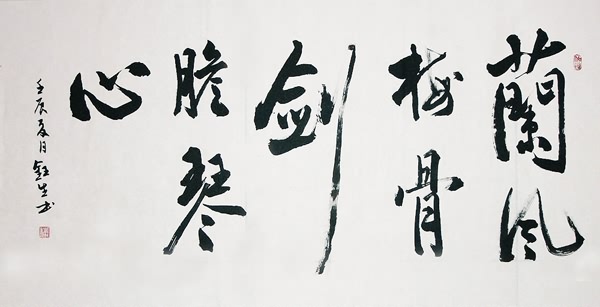 蘭風
梅骨
剑
膽琴
心
壬辰夏月
生书